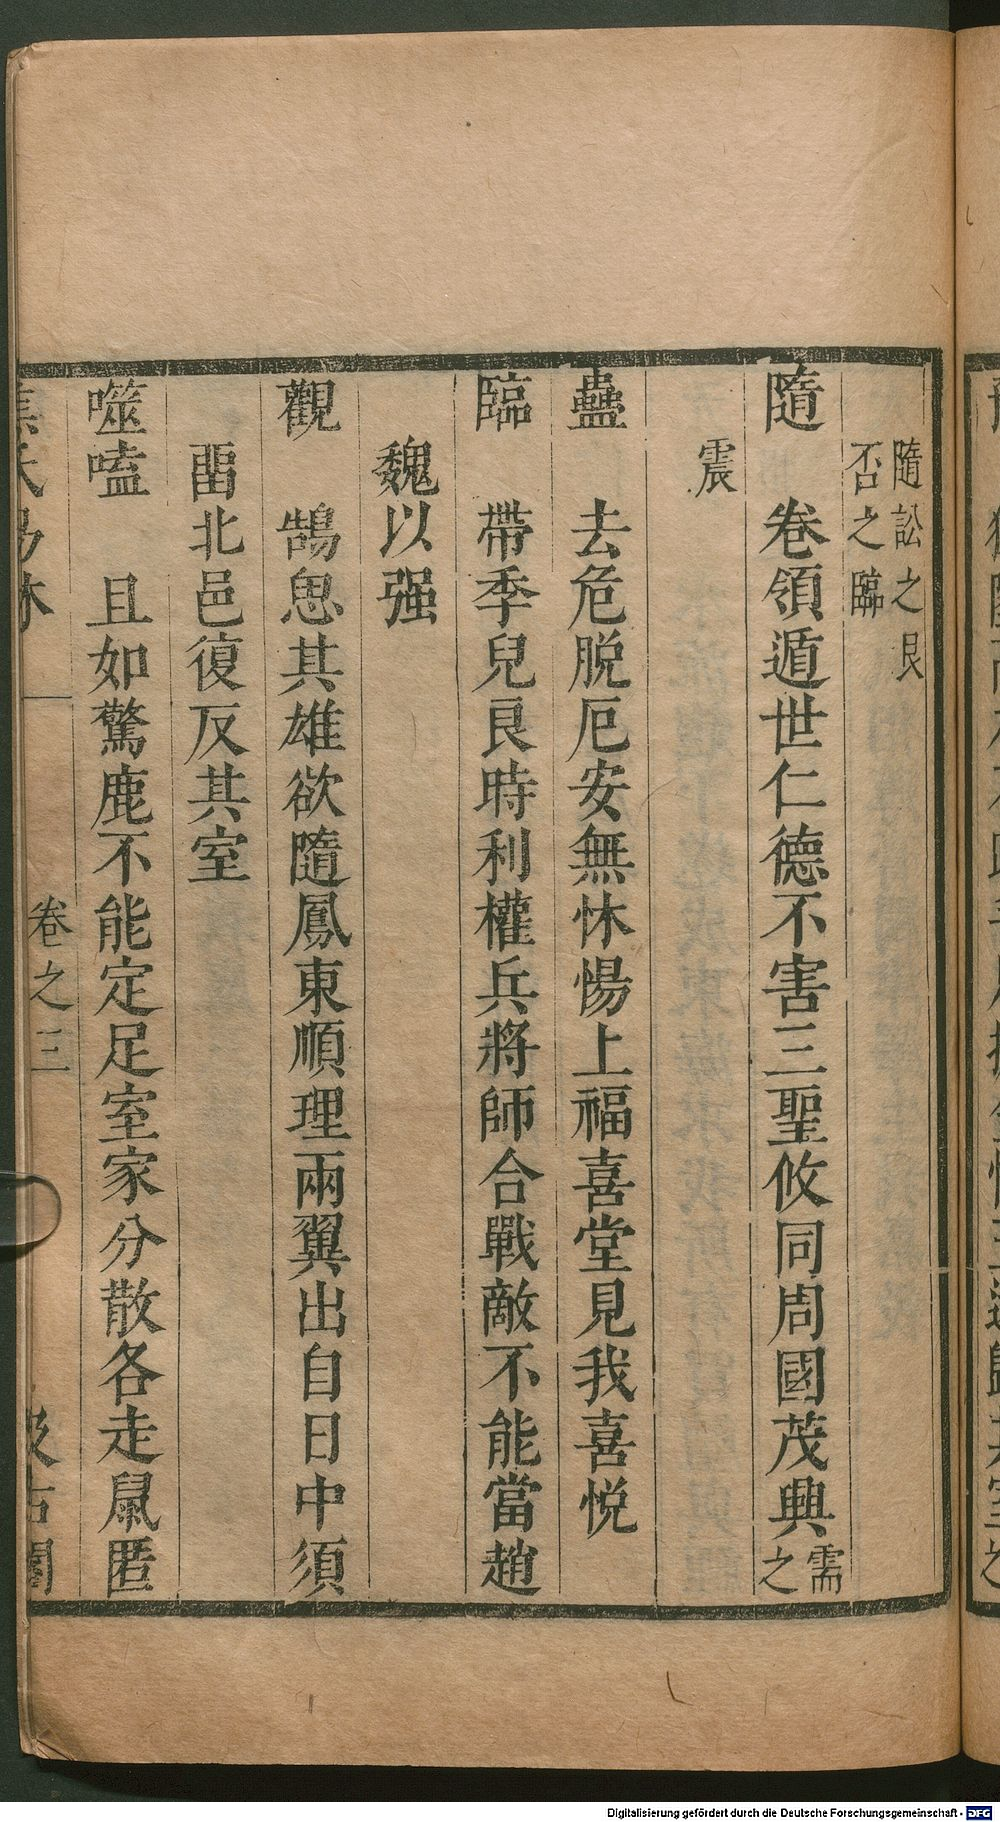 隨訟之艮
否之臨
隨　卷領遁世仁德不害三聖攸同周國茂興需之
震
蠱　去危脫厄安無怵惕上福喜堂見我喜悅
臨　帶季兒良時利權兵將師合戰敵不能當趙
魏以强
觀　鵠思其雄欲隨鳳東順理兩翼出自日中須
畱北邑復反其室
噬嗑　且如驚鹿不能定足室家分散各走鼠匿
焦氏易林　卷之三　汲古閣
Digitalisierung gefördert durch die Deutsche Forschungsgemeinschaft - DFG